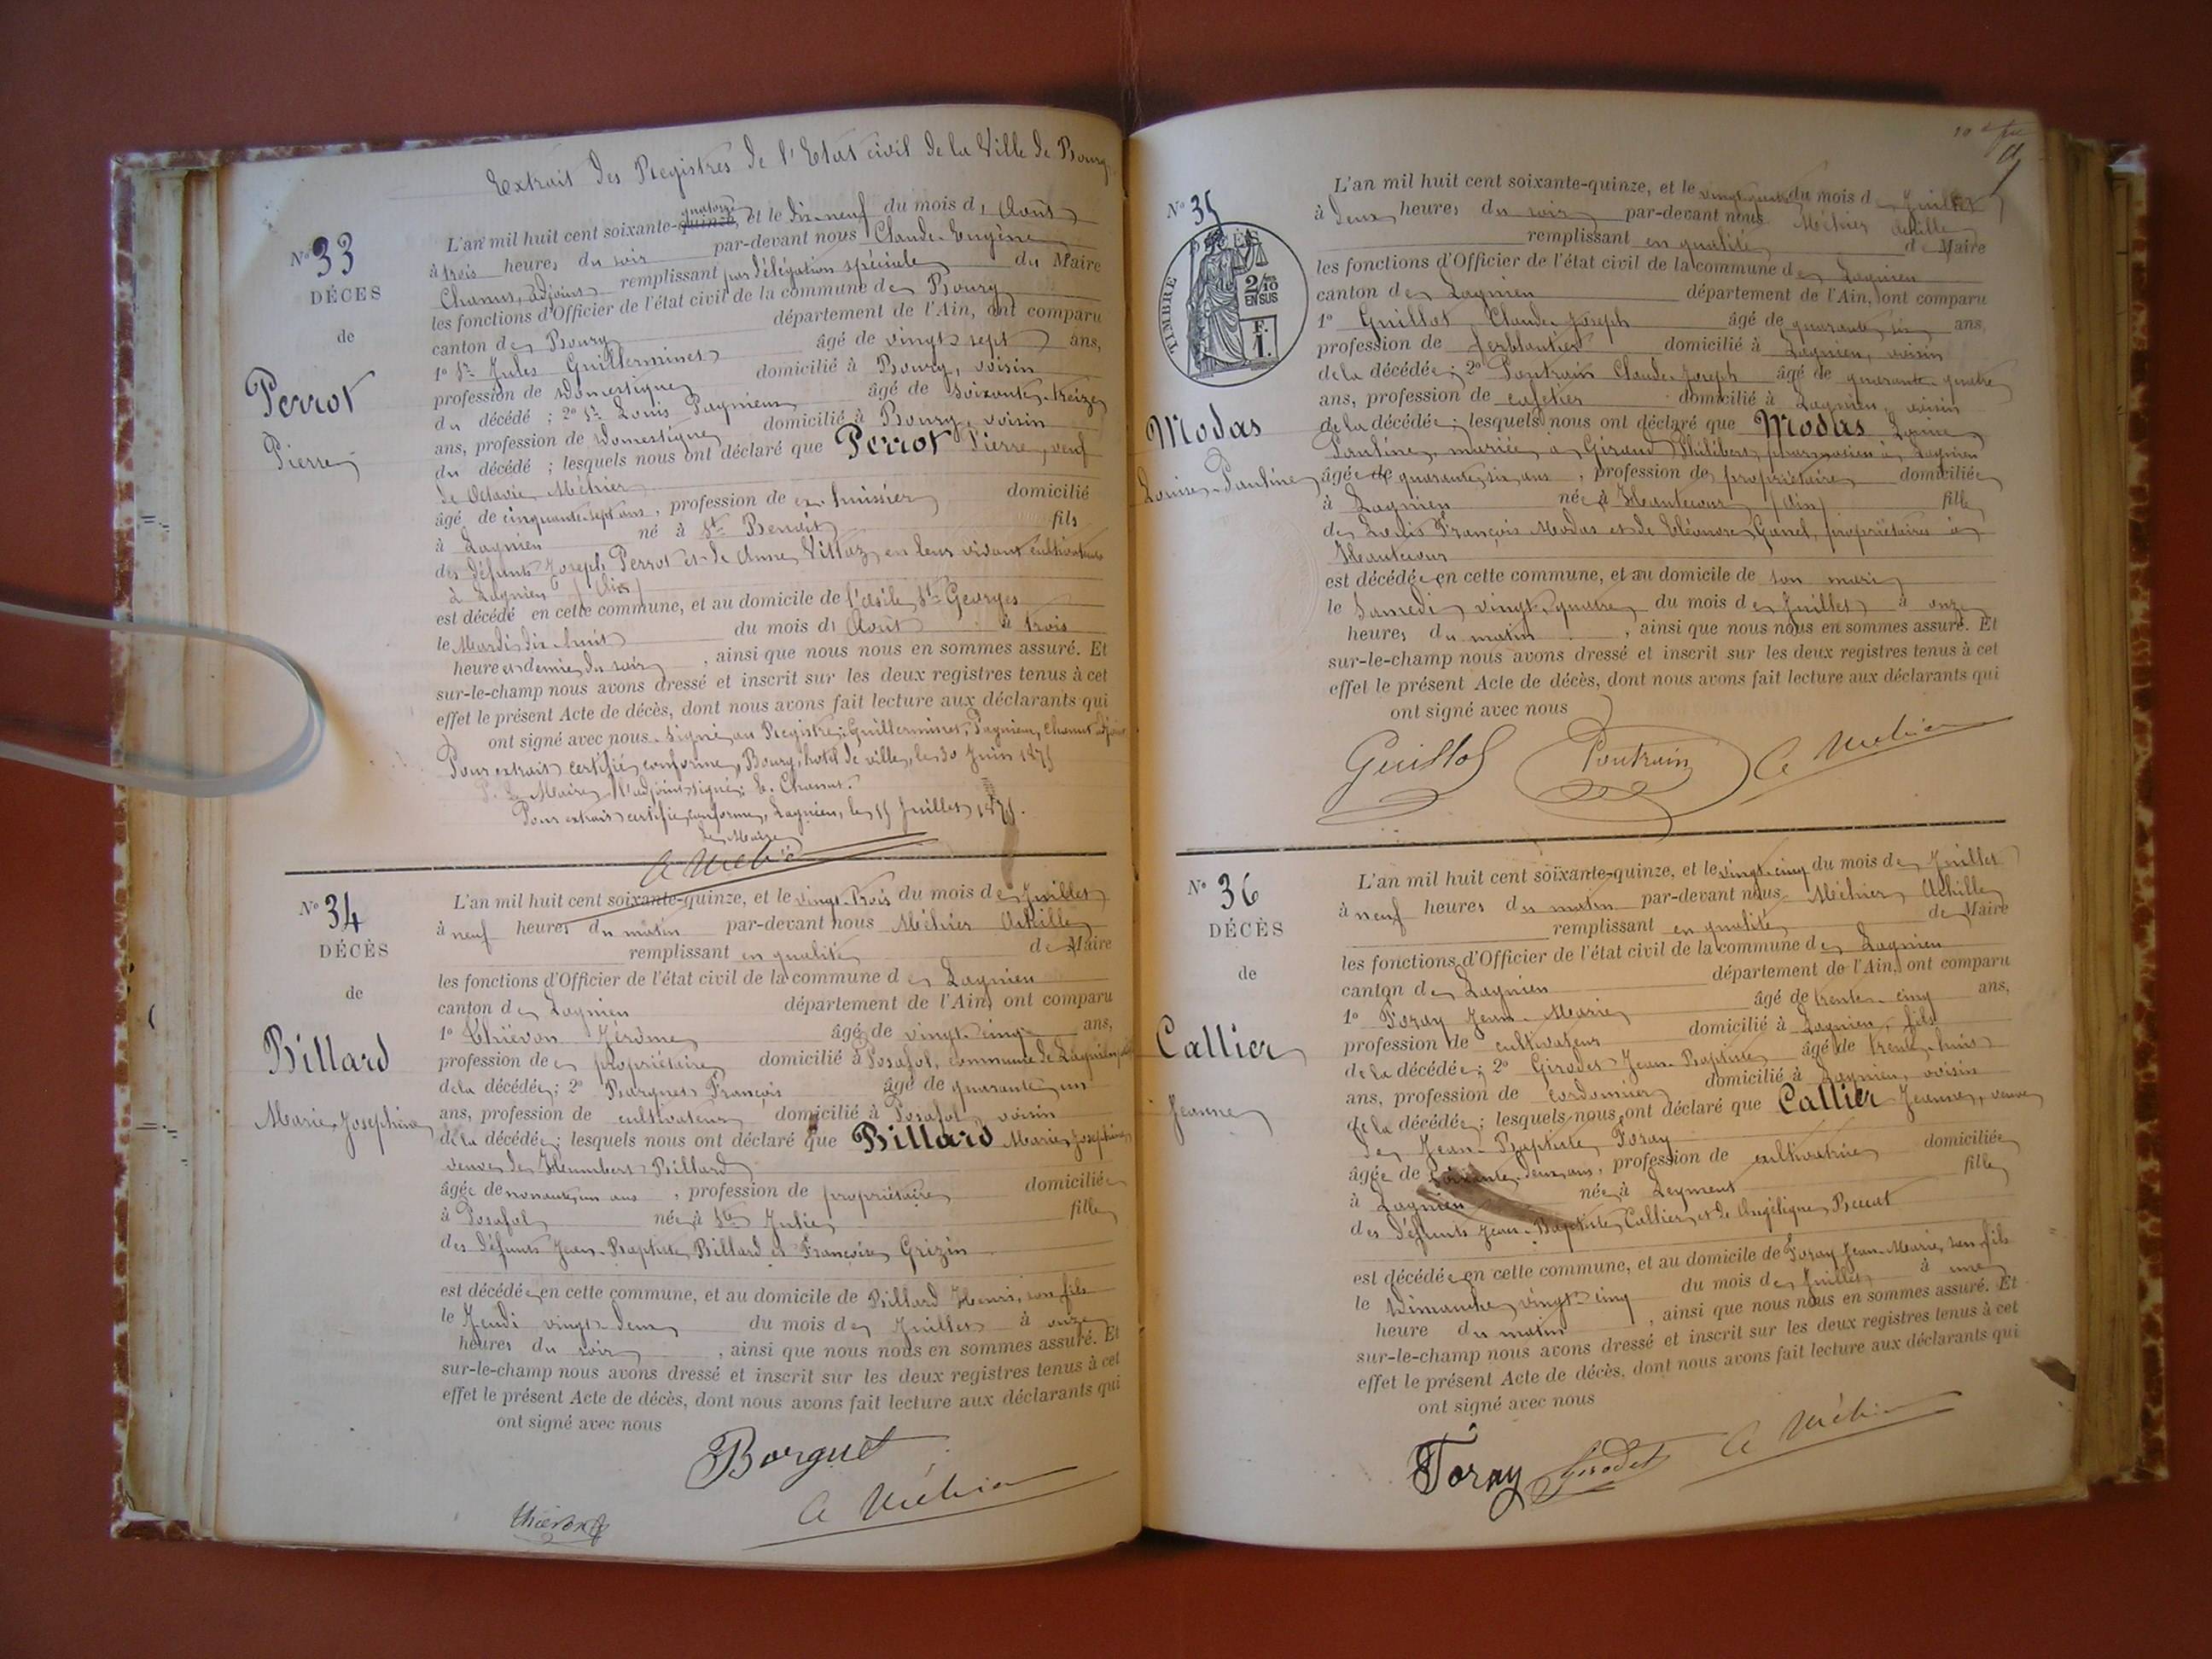 Extrait des Registres de l'Etat civil de la Ville de Bourg
N° 33
DÉCES
de
Perrot
Pierre
L'an mil huit cent soixante-quinze, quatorze et le dix-neuf du mois d' Août
à trois heures du soir par-devant nous Claude-Eugène
Chanut, adjoint remplissant par délégation spéciale du Maire
les fonctions d'Officier de l'état civil de la commune de Bourg
canton de Bourg département de l'Ain, ont comparu
1° Sr Jules Guillerminet âgé de vingt sept ans,
profession de Domestique domicilié à Bourg, voisin
du décédé ; 2° Sr Louis Pagnieux âgé de soixante-treize
ans, profession de Domestique domicilié à Bourg, voisin
du décédé ; lesquels nous ont déclaré que Perrot Pierre, veuf
de Octavie Méhier
âgé de cinquante-sept ans, profession de ex-huissier domicilié
à Lagnieu né à St Benoît fils
des défunts Joseph Perrot et de Anne Vittoz, en leur vivant cultivateurs
à Lagnieu (Ain)
est décédé en cette commune, et au domicile de l'asile St Georges
le Mardi dix-huit du mois d' Août à trois
heures et demie du soir, ainsi que nous nous en sommes assuré. Et
sur-le-champ nous avons dressé et inscrit sur les deux registres tenus à cet
effet le présent Acte de décès, dont nous avons fait lecture aux déclarants qui
ont signé avec nous. Signé au Registre: Guillerminet, Pagnieux, Chanut adjoint
Pour extrait certifié conforme, Bourg, hôtel de ville, le 30 Juin 1875
P. Le Maire, l'adjoint signé: E. Chanut.
Pour extrait certifié conforme, Lagnieu, le 15 Juillet 1875.
Le Maire
A Méhier
N° 34
DÉCÈS
de
Billard
Marie-Joséphine
L'an mil huit cent soixante-quinze, et le vingt-trois du mois de Juillet
à neuf heures du matin par-devant nous Méhier Achille
remplissant en qualité de Maire
les fonctions d'Officier de l'état civil de la commune de Lagnieu
canton de Lagnieu département de l'Ain, ont comparu
1° Thiévon Jérôme âgé de vingt-cinq ans,
profession de propriétaire domicilié à Posafol, commune de Lagnieu,
de la décédée; 2° Borguet François âgé de quarante-un
ans, profession de cultivateur domicilié à Posafol, voisin
de la décédée; lesquels nous ont déclaré que Billard Marie Joséphine
veuve de Humbert Billard
âgée de nonante-un ans, profession de propriétaire domiciliée
à Posafol née à Ste Julie fille
des défunts Jean-Baptiste Billard et Françoise Grizin
est décédée en cette commune, et au domicile de Billard Henri, son fils
le Jeudi vingt-deux du mois de Juillet à onze
heures du soir, ainsi que nous nous en sommes assuré. Et
sur-le-champ nous avons dressé et inscrit sur les deux registres tenus à cet
effet le présent Acte de décès, dont nous avons fait lecture aux déclarants qui
ont signé avec nous
Borguet
A Méhier
Thiévon J
N° 35
DÉCÈS
TIMBRE
2/10
EN SUS
F.
1.
Modas
Louise-Pauline
L'an mil huit cent soixante-quinze, et le vingt-quatre du mois de Juillet
à deux heures du soir par-devant nous Méhier Achille
remplissant en qualité de Maire
les fonctions d'Officier de l'état civil de la commune de Lagnieu
canton de Lagnieu département de l'Ain, ont comparu
1° Guillot Claude-Joseph âgé de quarante-six ans,
profession de ferblantier domicilié à Lagnieu, voisin
de la décédée; 2° Poutrain Claude-Joseph âgé de quarante-quatre
ans, profession de cafetier domicilié à Lagnieu, voisin
de la décédée; lesquels nous ont déclaré que Modas Louise
Pauline, mariée à Giraud Philibert, pharmacien à Lagnieu
âgée de quarante-six ans, profession de propriétaire domiciliée
à Lagnieu née à Hautecour (Ain) fille
de Louis François Modas et de Eléonore Ganel, propriétaires à
Hautecour
est décédée en cette commune, et au domicile de son mari
le Samedi vingt-quatre du mois de Juillet à onze
heures du matin, ainsi que nous nous en sommes assuré. Et
sur-le-champ nous avons dressé et inscrit sur les deux registres tenus à cet
effet le présent Acte de décès, dont nous avons fait lecture aux déclarants qui
ont signé avec nous
Guillot Poutrain A Méhier
N° 36
DÉCÈS
de
Callier
Jeanne
L'an mil huit cent soixante-quinze, et le vingt-cinq du mois de Juillet
à neuf heures du matin par-devant nous Méhier Achille
remplissant en qualité de Maire
les fonctions d'Officier de l'état civil de la commune de Lagnieu
canton de Lagnieu département de l'Ain, ont comparu
1° Foray Jean-Marie âgé de trente-cinq ans,
profession de cultivateur domicilié à Lagnieu, fils
de la décédée; 2° Girodet Jean-Baptiste âgé de trente-huit
ans, profession de Cordonnier domicilié à Lagnieu, voisin
de la décédée; lesquels nous ont déclaré que Callier Jeanne, veuve
de Jean-Baptiste Foray
âgée de soixante-deux ans, profession de cultivatrice domiciliée
à Lagnieu née à Leyment fille
des défunts Jean-Baptiste Callier et de Angélique
est décédée en cette commune, et au domicile de Foray Jean-Marie, son fils
le Dimanche vingt-cinq du mois de Juillet à une
heure du matin, ainsi que nous nous en sommes assuré. Et
sur-le-champ nous avons dressé et inscrit sur les deux registres tenus à cet
effet le présent Acte de décès, dont nous avons fait lecture aux déclarants qui
ont signé avec nous
Foray Girodet A Méhier